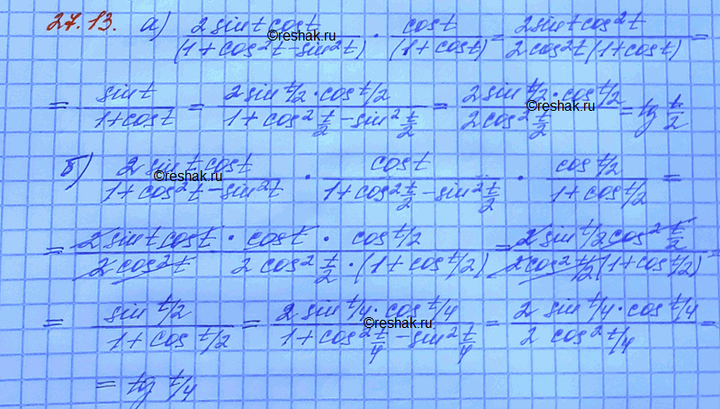 27.13. а) (2 sin t cos t)/(1+cos²t−sin²t) · cos t/(1+cos t) = (2 sin t cos²t)/(2cos²t(1+cos t)) =
= sin t/(1+cos t) = (2 sin t/2 · cos t/2)/(1+cos² t/2 − sin² t/2) = (2 sin t/2 · cos t/2)/(2cos² t/2) = tg t/2
б) (2 sin t cos t)/(1+cos²t−sin²t) · cos t/(1+cos² t/2 − sin² t/2) · (cos t/2)/(1+cos t/2) =
= (2 sin t cos t · cos t · cos t/2)/(2cos²t · 2cos² t/2 · (1+cos t/2)) = (2 sin t/2 cos² t/2)/(2cos² t/2 (1+cos t/2)) =
= (sin t/2)/(1+cos t/2) = (2 sin t/4 · cos t/4)/(1+cos² t/4 − sin² t/4) = (2 sin t/4 · cos t/4)/(2 cos² t/4) =
= tg t/4
©reshak.ru
©reshak.ru
©reshak.ru
©reshak.ru